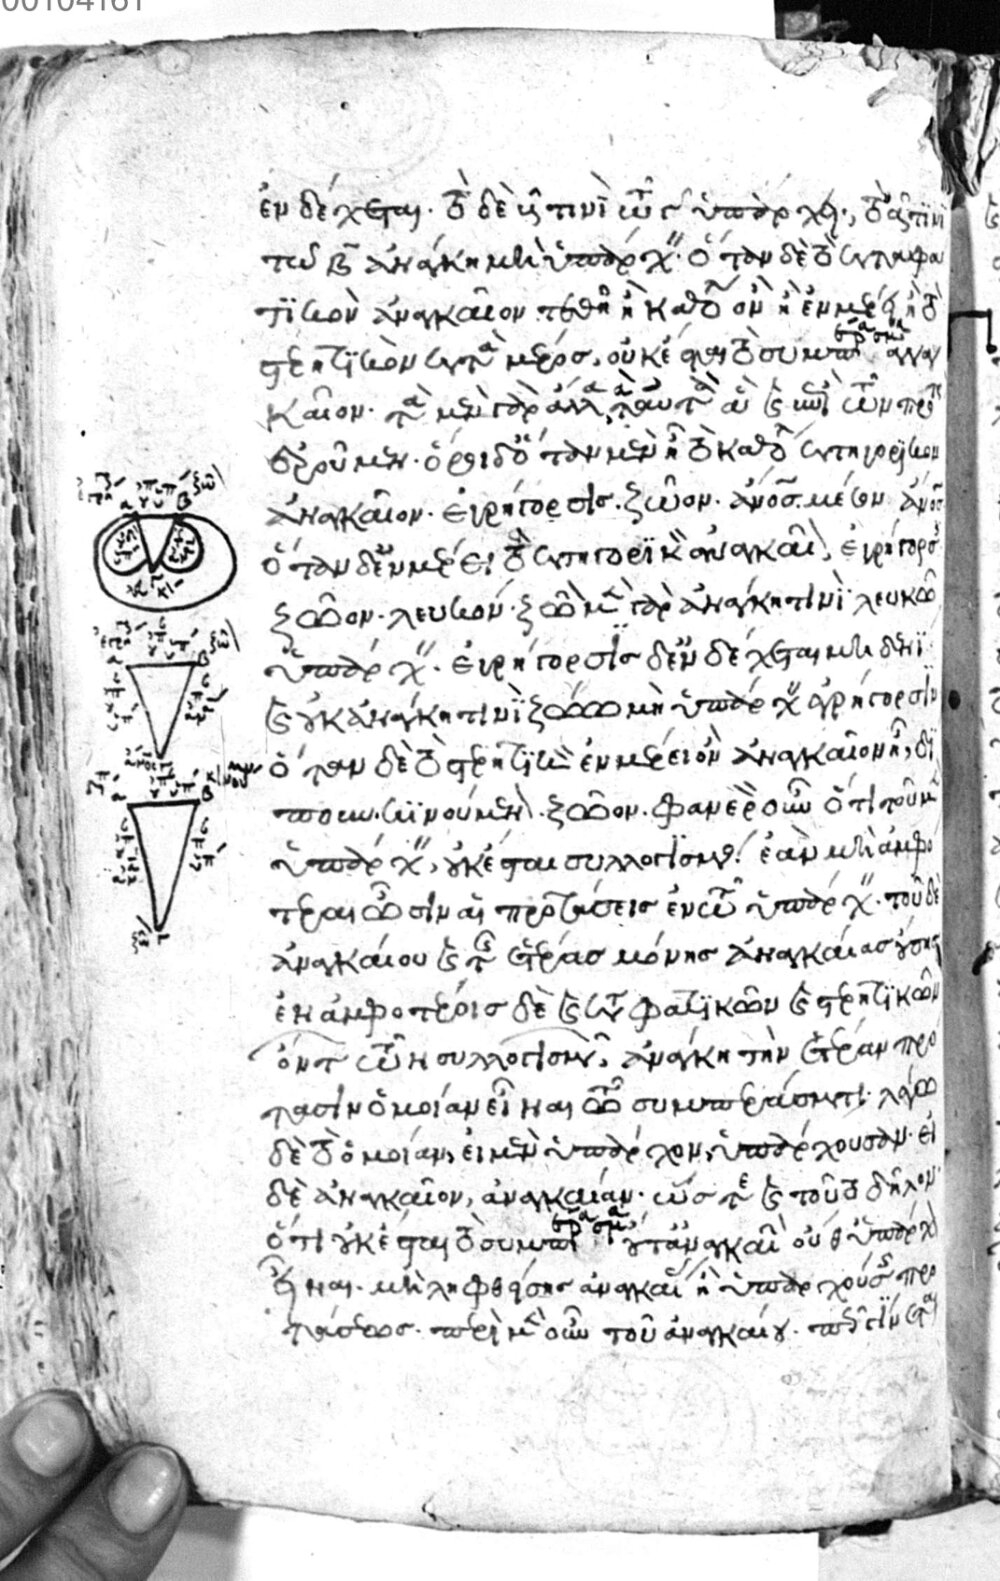 ἐνδέχεται· τὸ δὲ β τινὶ τῶ γ ὑπάρχει, τὸ α τινὶ
τῶ β ἀνάγκη μὴ ὑπάρχειν· ὅταν δὲ τὸ καταφα
τικὸν ἀναγκαῖον τεθῆ ἢ καθόλου ὂν ἢ ἐν μέρει ἢ τὸ
στερητικὸν κατὰ μέρος, οὐκ ἔσται τὸ συμπέρασμα ἀναγ
καῖον· τὰ μὲν γὰρ ἄλλα ταὐτὰ ἃ καὶ ἐπὶ τῶν πρότερον
ἐροῦμεν· ὅροι δ' ὅταν μὲν ἦ τὸ καθόλου κατηγορικὸν
ἀναγκαῖον· ἐγρήγορσις· ζῶον· ἄνθρωπος· μέσον ἄνθρωπος
ὅταν δ' ἐν μέρει τὸ κατηγορικὸν ἀναγκαῖον, ἐγρήγορσις
ζῶον· λευκόν· ζῶον μὲν γὰρ ἀνάγκη τινὶ λευκῶ
ὑπάρχειν· ἐγρήγορσις δ' ἐνδέχεται μηδενί·
καὶ οὐκ ἀνάγκη τινὶ ζώω μὴ ὑπάρχειν ἐγρήγορσιν
ὅταν δὲ τὸ στερητικὸν ἐν μέρει ὂν ἀναγκαῖον ἦ, δί
πουν· κινούμενον· ζῶον· φανερὸν οὖν ὅτι τοῦ μὲν
ὑπάρχειν, οὐκ ἔσται συλλογισμός· ἐὰν μὴ ἀμφό
τεραι ὦσιν αἱ προτάσεις ἐν τῶ ὑπάρχειν· τοῦ δὲ
ἀναγκαίου καὶ τῆς ἑτέρας μόνης ἀναγκαίας οὔσης
ἐν ἀμφοτέροις δὲ καὶ τῶν φατικῶν καὶ στερητικῶν
ὄντων τῶν συλλογισμῶν, ἀνάγκη τὴν ἑτέραν πρό
τασιν ὁμοίαν εἶναι τῶ συμπεράσματι· λέγω
δὲ τὸ ὁμοίαν, εἰ μὲν ὑπάρχον, ὑπάρχουσαν· εἰ
δὲ ἀναγκαῖον, ἀναγκαίαν· ὥστε καὶ τοῦτο δῆλον
ὅτι οὐκ ἔσται τὸ συμπέρασμα οὔτ' ἀναγκαῖον οὔθ' ὑπάρχον
εἶναι· μὴ ληφθείσης ἀναγκαίας ἢ ὑπαρχούσης προ
τάσεως· περὶ μὲν οὖν τοῦ ἀναγκαίου· πῶς γίνεται